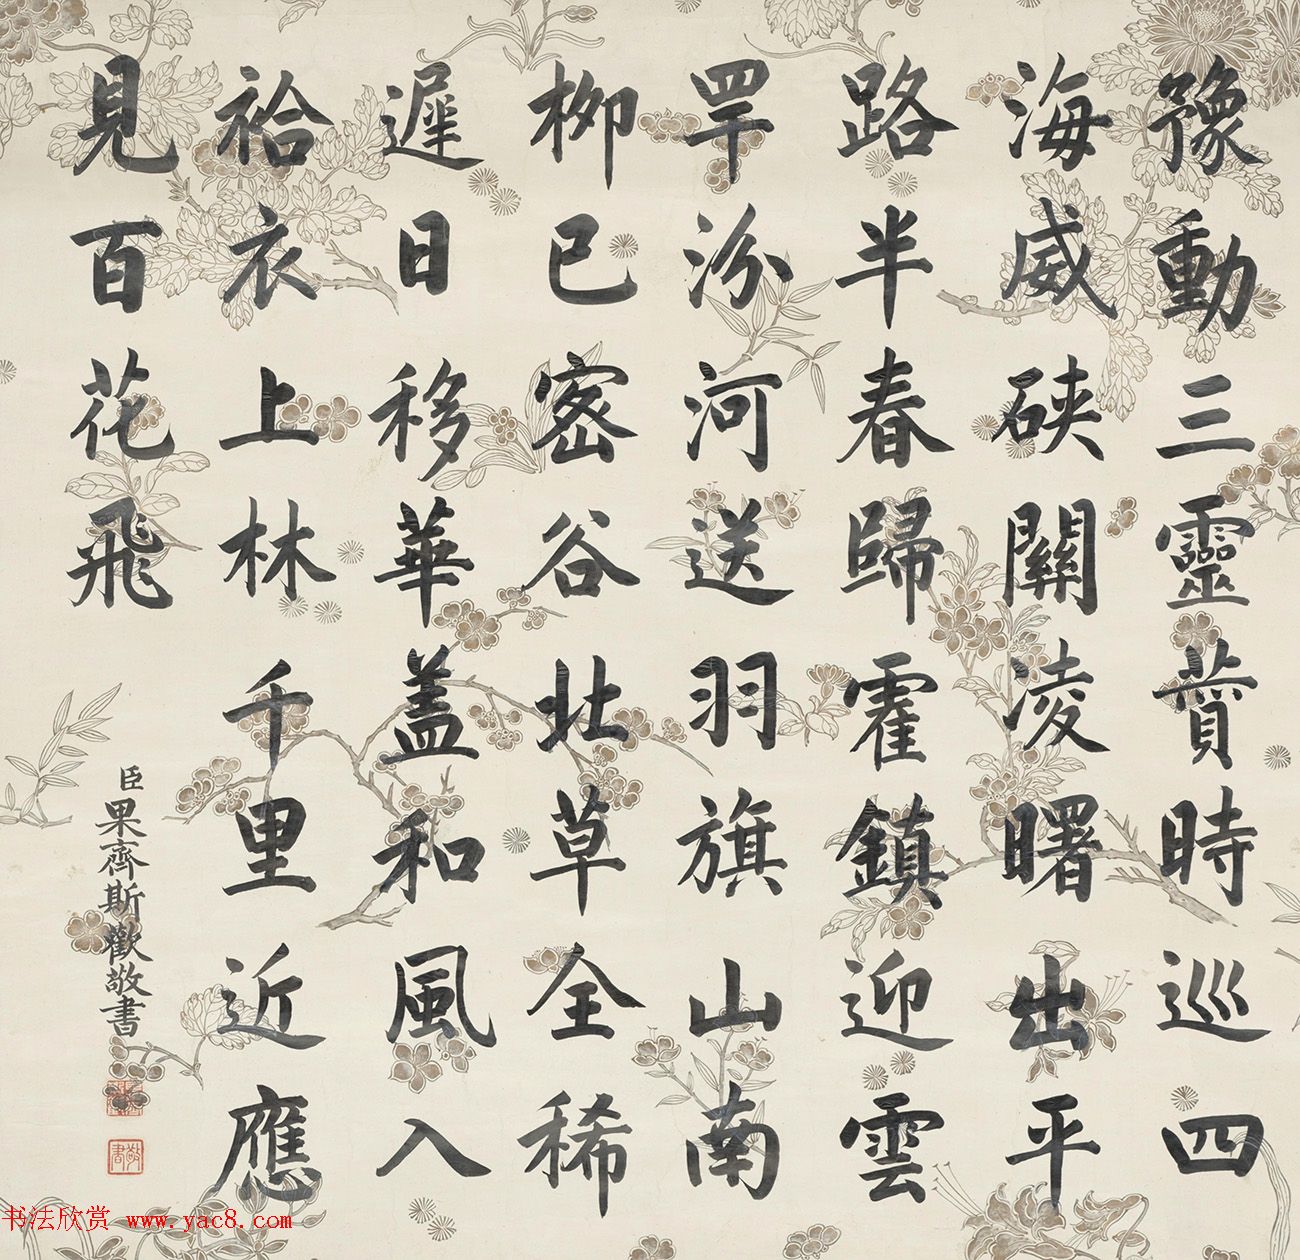 豫動三靈賛時巡四
海威硤關凌曙出平
路半春歸霍鎮迎雲
罕汾河送羽旗山南
柳已密谷北草全稀
遲日移華蓋和風入
袷衣上林千里近應
見百花飛
臣果齊斯歡敬書
敬書
书法欣赏 www.yac8.com